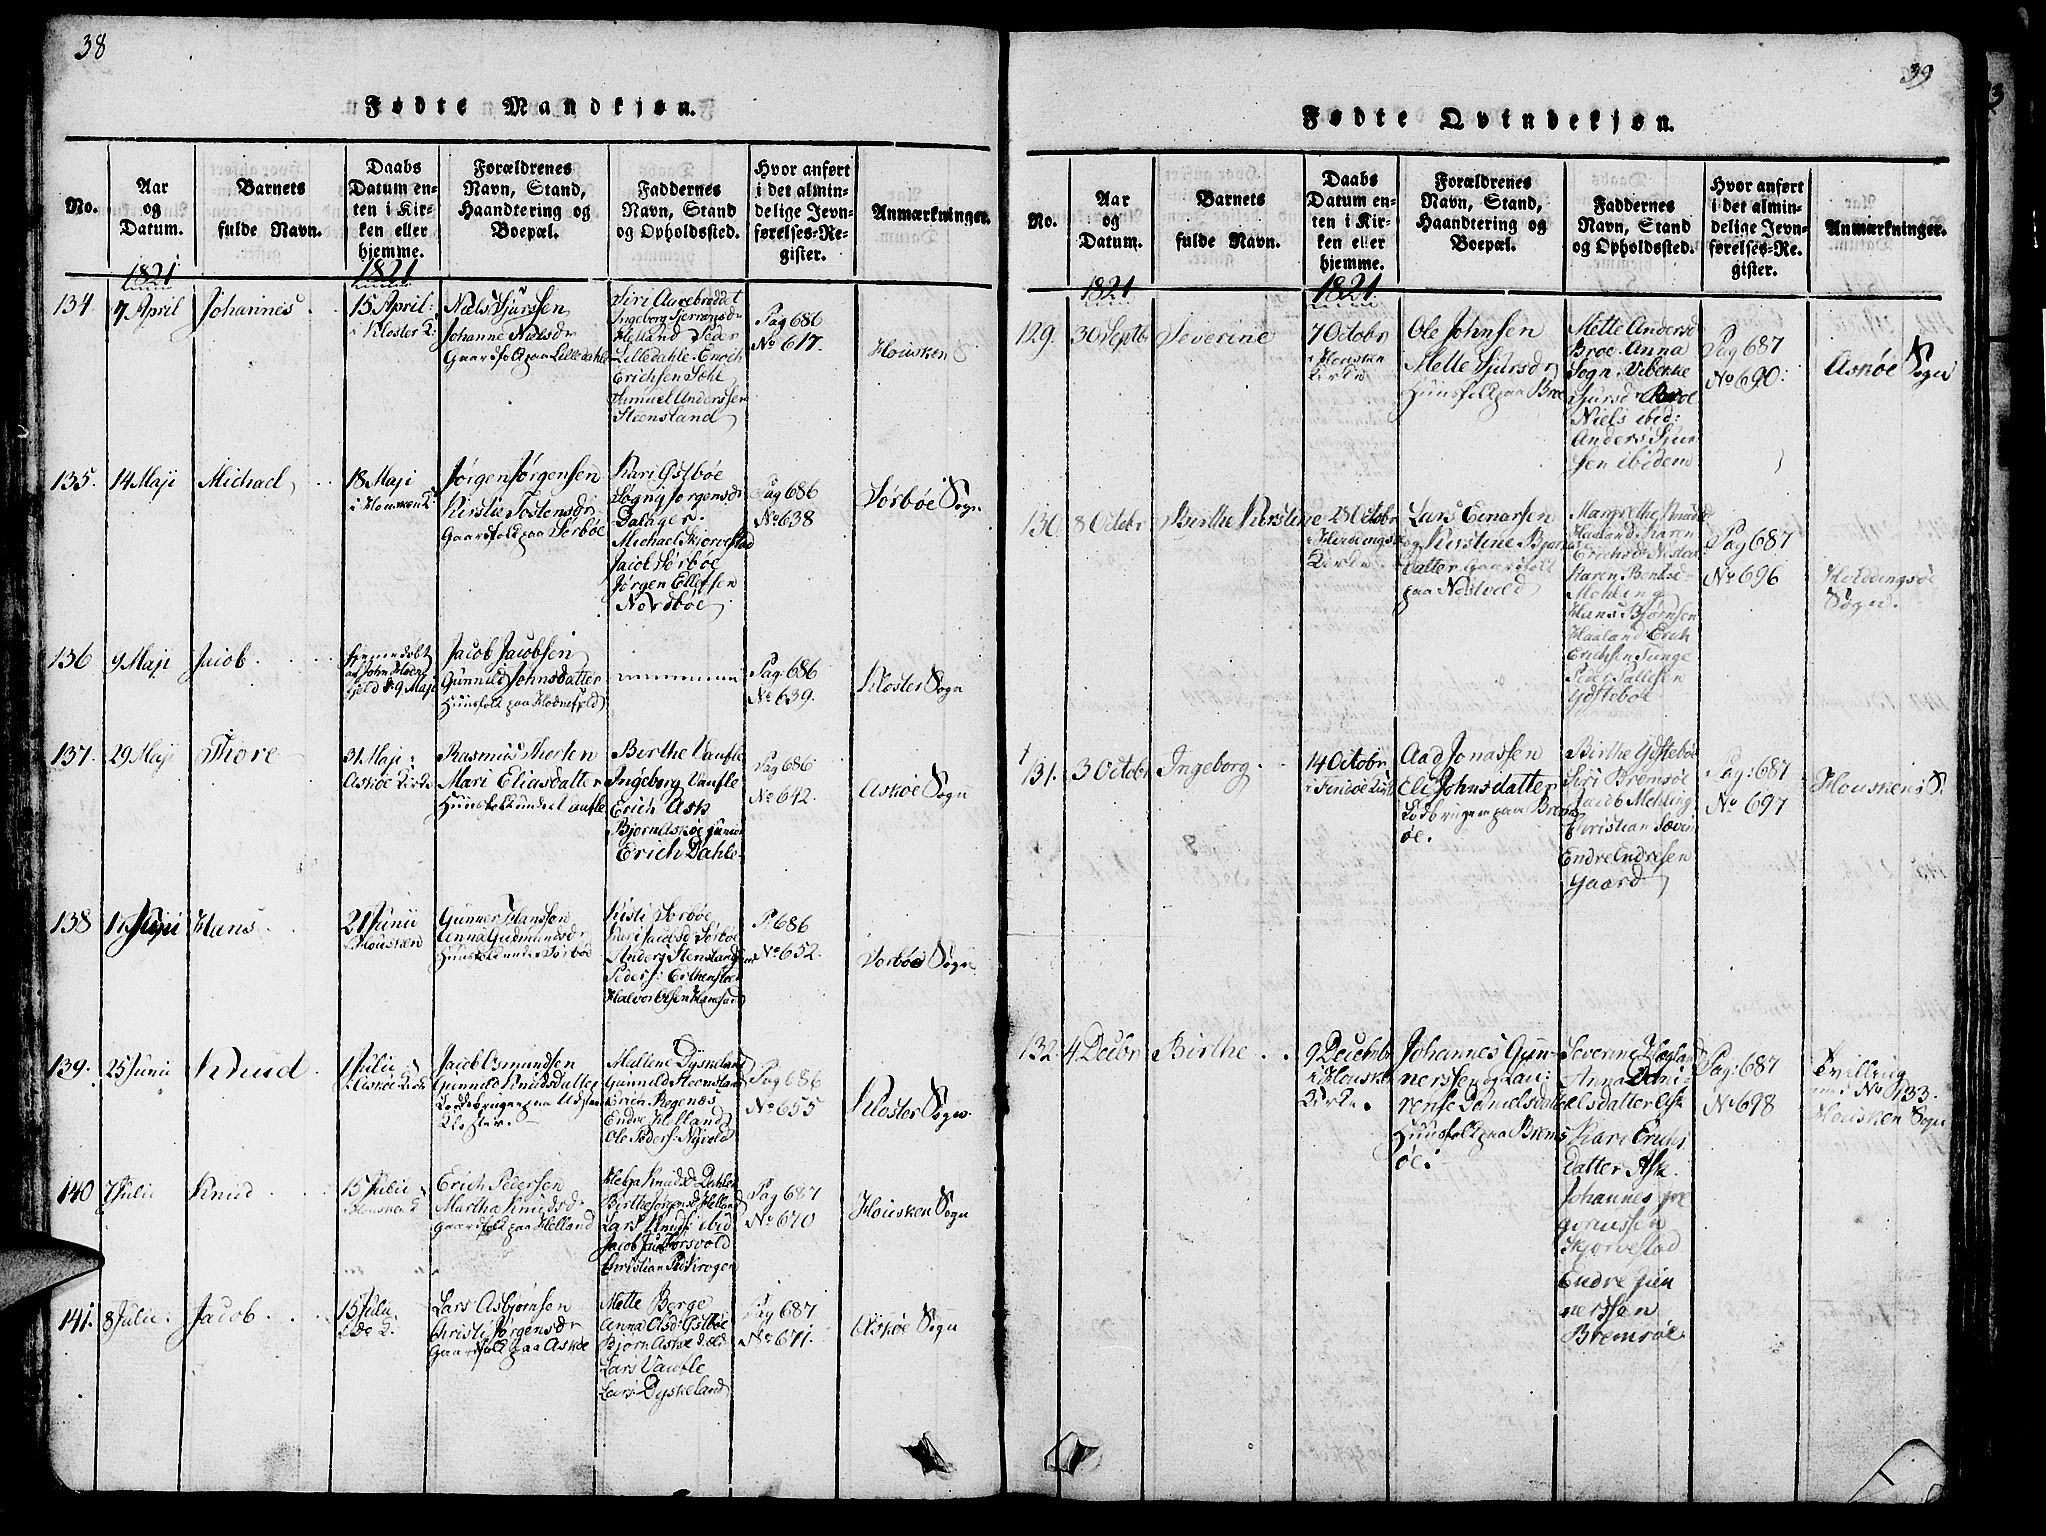 38
Fødte Mandkjøn.
No.
Aar
og
Datum.
Barnets
fulde Navn.
Daabs
Datum en-
ten i Kir-
ken eller
hjemme.
Forældrenes
Navn, Stand,
Haandtering og
Boepæl.
Faddernes
Navn, Stand
og Opholdssted.
Hvor anført
i det almin-
delige Jevn-
førelses-Re-
gister.
Anmærkninger.
1821
1821
134
7 April
Johannes
15 April
i Kloster K:
Niels Sjursen
Johanne Nielsdr
Gaardfolk paa Lilledahle
Siri Aarebroddet
Ingeborg
Helland Peder
Lilledahle. Enoch
Erichsen Sæhl
Samuel Anderssen
Steensland
Pag 686
No 617.
Housken S
135.
14 Maji
Michael
18 Maji
i Housken K
Jørgen Jørgensen
Kirstie Tostensdr
Gaardfolk paa Sørbøe
Kari Østbøe
Søgny Jørgensdr
Dalager.
Michael Skjørvestad
Jacob Sørbøe
Jørgen Ellefsen
Nordbøe
Pag 686
No 638
Sørbøe Sogn
136
9 Maji
Jacob
hjemmedøbt
af John Hodne
fjeld d. 9 Maji
Jacob Jacobsen
Gunnild Johnsdatter
Huusfolk paa Hodnefjeld
Pag. 686
No 639.
Kloster Sogn
137.
29 Maji
Thore
31 Maji
Askøe Kirke
Rasmus Thorsen
Mari Eliasdatter
Huusfolk under Vaufle
Berthe Vaufle
Ingeborg Vaufle
Erich Ask
Bjørn Askøe junior
Erich Dahle
Pag 686
No 642.
Askøe Sogn
138
Hans
21 Junii
i Housken
Gunner Hansson
Anna Gudmundsdr
Huusfolk under Sørbøe
Kisti Sørbøe
Kari Jacobsd Sørbøe
Anders Stensland
Peders:
Halvor Olsen
P. 686
No 652.
Sørbøe Sogn
139.
25 Junii
Knud
1 Julii
i Askøe Kirke
Jacob Osmundsen
Gunnild Knudsdatter
Jordebruger paa Udsten
Kloster.
Mallene Dyskeland
Gunnild Steensland
Erich Regenæs
Endre Helland
Ole Peders: Nyvold
Pag 686
No 655
Kloster Sogn
140
7 Julii
Knud
15 Julii
i Housken K
Erich Pedersen
Martha Knudsd
Gaardfolk paa Helland
Helga Knudsd Dahlen
Birthe Jørgensd Helland
Lars Knuds ibid
Jacob Torsvold
Christian Krogen
Pag 687
No 670
Housken Sogn
141.
8 Julii
Jacob
15 Julii
i do K:
Lars Asbjørnsen
Christi Jørgensdr
Gaardfolk paa Askøe
Mette Berge
Anna Asd Østbøe
Bjørn Askøe d. æld
Lars Vaufle
Lars Dyskeland
Pag 687
No 671.
Askøe Sogn
39
Fødte Qvindekjøn.
No.
Aar
og
Datum.
Barnets
fulde Navn.
Daabs
Datum en-
ten i Kir-
ken eller
hjemme.
Forældrenes
Navn, Stand,
Haandtering og
Boepæl.
Faddernes
Navn, Stand
og Opholdssted.
Hvor anført
i det almin-
delige Jevn-
førelses-Re-
gister.
Anmærkninger.
1821
1821
129.
30 Septb
Severine
7 Octobr
i Housken
Kirke
Ole Johnsen
Mette Sjursdr
Huusfolk paa Broe
Mette Andersd
Broe. Anna
Sogn. Viberke
Sjursdr Broe
Niels ibid:
Anders Sjur
sen ibidem
Pag 687
No 690.
Askøe Sogn
130.
8 Octobr
Birthe Kirstine
28 Octobr
i Hviddingsøe
Kirke
Lars Einarsen
og Kirstine Bjørns
datter Gaardfolk
paa Nostvold
Margrethe Knudsd
Haaland. Karen
Erichsdr
Karen Bentsdr
Mehling
Hans Bjørnsen
Haaland. Erich
Erichsen Tunge
Peder Pallesen
Ydstebøe
Pag 687
No 696
Hviddingsøe
Sogn.
131.
3 Octobr
Ingeborg
14 Octobr
i Findøe Kirke
Aad Jonassen
Eli Johnsdatter
Jodbruger paa Brems
øe.
Birthe Ydstebøe
Siri Bremsøe
Jacob Mehling
Christian Sævin
Endre Endresen
Gaard
Pag: 687
No 697
Houskens S.
132.
4 Decbr
Birthe
9 Decembr
i Housken
Kirke.
Johannes Gun-
nerssen og Lau:
rense Danielsdatter
Huusfolk paa Brems
øe:
Severine Hagland
Anna Dani-
elsdatter Ask
Kari Erichs
datter Ask.
Johannes Gre
goriussen
Skjørvestad
Endre Jien
nerssen
Bremsøe
Pag: 687
No 698
Tvilling
med No 133.
Housken Sogn